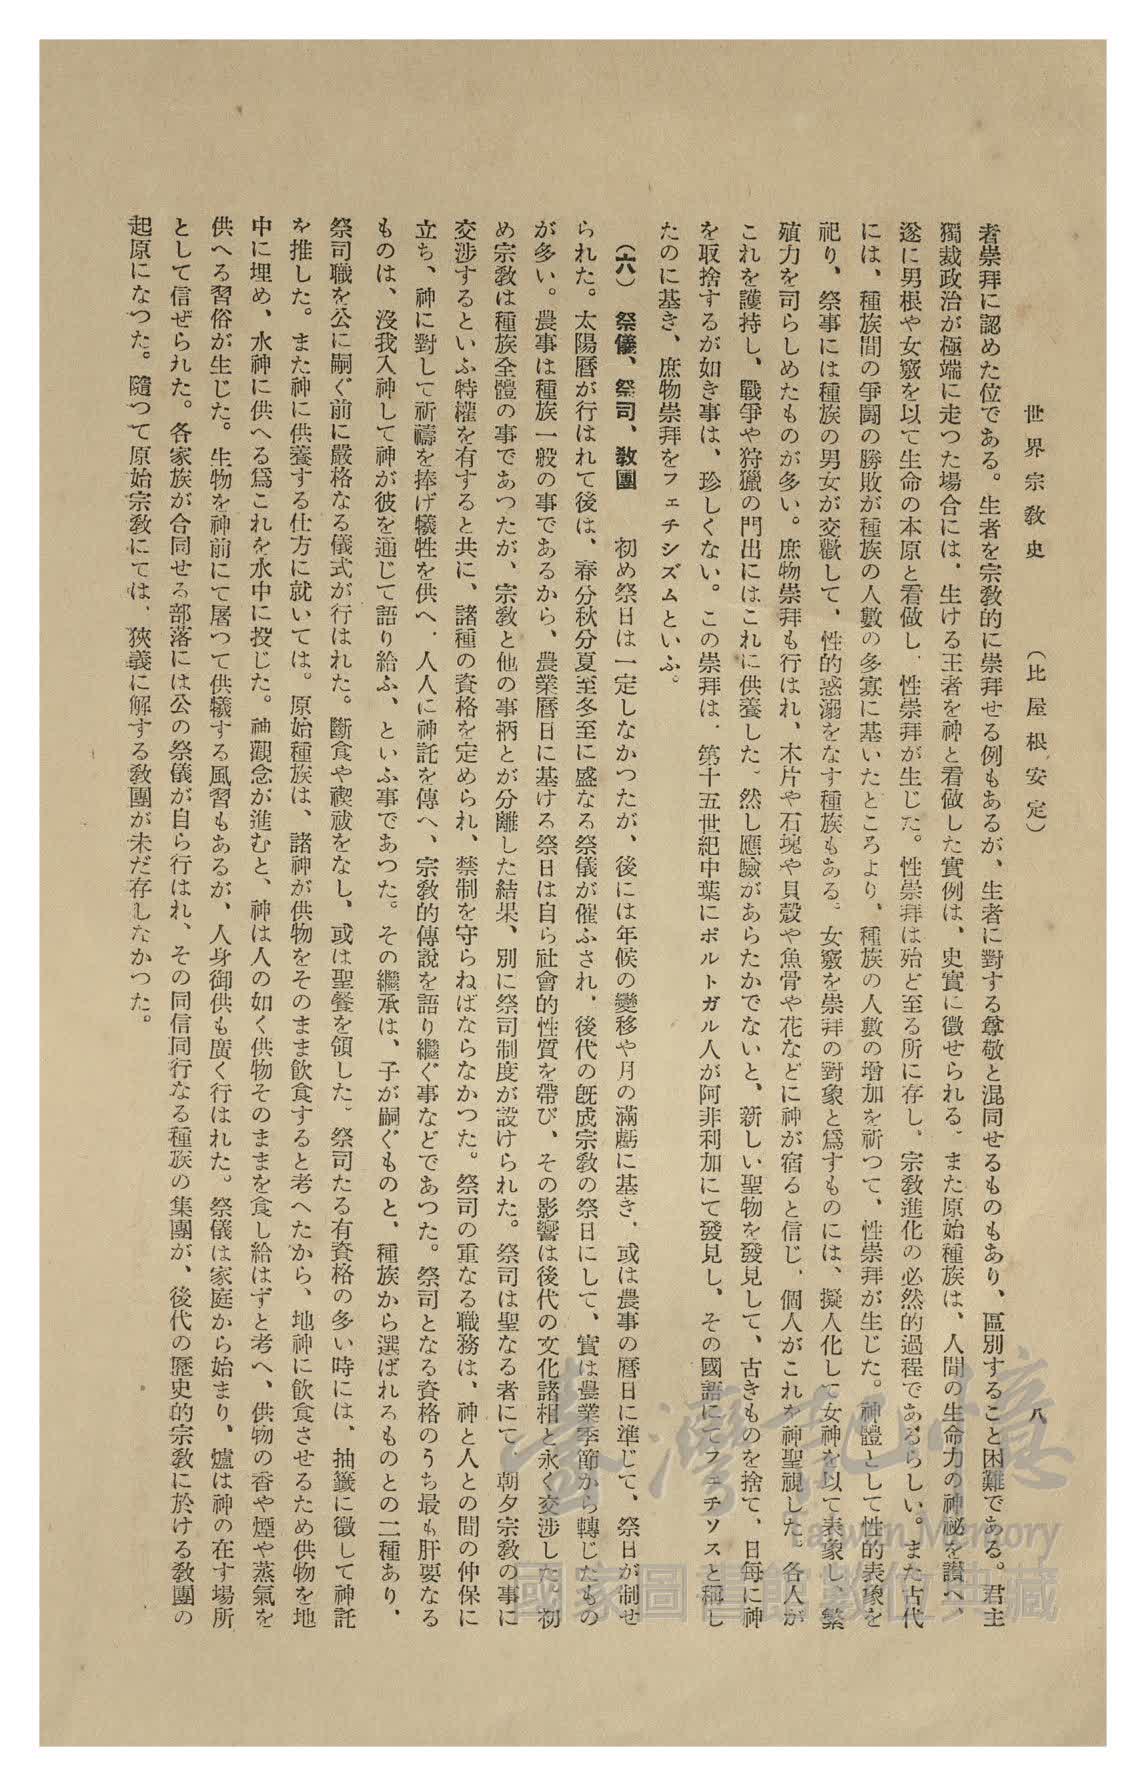 世界宗敎史 (比屋根安定) 八
者崇拜に認めた位である。生者を宗敎的に崇拜せる例もあるが、生者に對する尊敬と混同せるものもあり、區別すること困難である。君主
獨裁政治が極端に走つた場合には、生ける王者を神と看做した實例は、史實に徵せられる。また原始種族は、人間の生命力の神祕を讃へ、
遂に男根や女竅を以て生命の本原と看做し、性崇拜が生じた。性崇拜は殆ど至る所に存し、宗敎進化の必然的過程であるらしい。また古代
には、種族間の爭鬪の勝敗が種族の人數の多寡に基いたところより、種族の人數の增加を祈つて、性崇拜が生じた。神體として性的表象を
祀り、祭事には種族の男女が交歡して、性的惑溺をなす種族もある。女竅を崇拜の對象と爲すものには、擬人化して女神を以て表象し、繁
殖力を司らしめたものが多い。庶物崇拜も行はれ、木片や石塊や貝殼や魚骨や花などに神が宿ると信じ、個人がこれを神聖視した。各人が
これを護持し、戰爭や狩獵の門出にはこれに供養した。然し應驗があらたかでないと、新しい聖物を發見して、古きものを捨て、日每に神
を取捨するが如き事は、珍しくない。この崇拜は、第十五世紀中葉にポルトガル人が阿非利加にて發見し、その國語にてフェチソスと稱し
たのに基き、庶物崇拜をフェチシズムといふ。
(六) 祭儀、祭司、敎團 初め祭日は一定しなかつたが、後には年候の變移や月の滿虧に基き、或は農事の曆日に準じて、祭日が制せ
られた。太陽曆が行はれて後は、春分秋分夏至冬至に盛なる祭儀が催ふされ、後代の旣成宗敎の祭日にして、實は農業季節から轉じたもの
が多い。農事は種族一般の事であるから、農業曆日に基ける祭日は自ら社會的性質を帶び、その影響は後代の文化諸相と永く交涉した。初
め宗敎は種族全體の事であつたが、宗敎と他の事柄とが分離した結果、別に祭司制度が設けられた。祭司は聖なる者にて、朝夕宗敎の事に
交涉するといふ特權を有すると共に、諸種の資格を定められ、禁制を守らねばならなかつた。祭司の重なる職務は、神と人との間の仲保に
立ち、神に對して祈禱を捧げ犧牲を供へ、人人に神託を傳へ、宗敎的傳說を語り繼ぐ事などであつた。祭司となる資格のうち最も肝要なる
ものは、沒我入神して神が彼を通じて語り給ふ、といふ事であつた。その繼承は、子が嗣ぐものと、種族から選ばれるものとの二種あり、
祭司職を公に嗣ぐ前に嚴格なる儀式が行はれた。斷食や禊祓をなし、或は聖餐を領した。祭司たる有資格の多い時には、抽籤に徵して神託
を推した。また神に供養する仕方に就いては。原始種族は、諸神が供物をそのまま飮食すると考へたから、地神に飮食させるため供物を地
中に埋め、水神に供へる爲これを水中に投じた。神觀念が進むと、神は人の如く供物そのままを食し給はずと考へ、供物の香や煙や蒸氣を
供へる習俗が生じた。生物を神前にて屠つて供犧する風習もあるが、人身御供も廣く行はれた。祭儀は家庭から始まり、爐は神の在す場所
として信ぜられた。各家族が合同せる部落には公の祭儀が自ら行はれ、その同信同行なる種族の集團が、後代の歷史的宗敎に於ける敎團の
起原になつた。隨つて原始宗敎にては、狹義に解する敎團が未だ存しなかつた。
臺灣記憶
Taiwan Memory
國家圖書館數位典藏